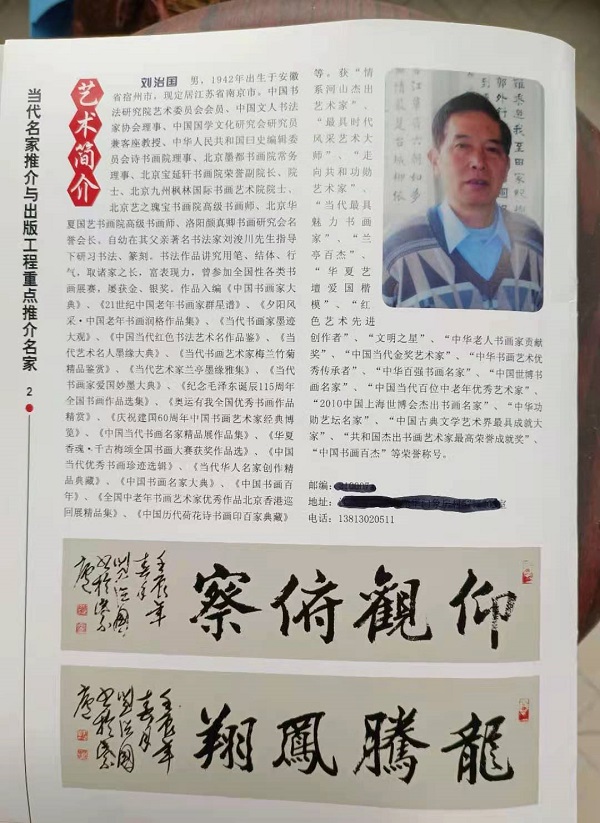 当代名家推介与出版工程重点推介名家
2
艺术简介
刘治国 男，1942年出生于安徽
省宿州市，现定居江苏省南京市，中国书
法研究院艺术委员会会员、中国文人书法
家协会理事、中国国学文化研究会研究员
兼客座教授、中华人民共和国日史编辑委
员会诗书画院理事、北京墨都书画院常务
理事、北京宝延轩书画院荣誉副院长、院
士、北京九州枫林国际书画艺术院院士、
北京艺之瑰宝书画院高级书画师、北京华
夏国艺书画院高级书画师、洛阳颜真卿书画研究会名
誉会长、自幼在其父亲著名书法家刘浚川先生指导
下研习书法、篆刻。书法作品讲究用笔、结体、行
气，取诸家之长，富表现力，曾参加全国性各类书
画展赛，屡获金、银奖。作品入编《中国书画家大
典》、《21世纪中国老年书画家群星谱》、《夕阳风
采·中国老年书画润格作品集》、《当代书画家墨迹
大观》、《中国当代红色书法艺术名作品鉴》、《当
代艺术名人墨缘大典》、《当代书画艺术家梅兰竹菊
精品鉴赏》、《当代艺术家兰亭墨缘雅集》、《当代
书画家爱国妙墨大典》、《纪念毛泽东诞辰115周年
全国书画作品选集》、《奥运有我全国优秀书画作品
精赏》、《庆祝建国60周年中国书画艺术家经典博
览》、《中国当代书画名家精品展作品集》、《华夏
香魂·千古梅颂全国书画大赛获奖作品选》、《中国
当代优秀书画珍迹选辑》、《当代华人名家创作精
品典藏》、《中国书画名家大典》、《中国书画百
年》、《全国中老年书画艺术家优秀作品北京香港巡
回展精品集》、《中国历代荷花诗书画印百家典藏》
等。获“情
系河山杰出
艺术家”、
“最具时代
风采艺术大
师”、“走
向共和功勋
艺术家”、
“当代最具
魅力书画
家”、“兰
亭百杰”、
“华夏艺
增爱国楷
模”、“红
色艺术先进
创作者”、“文明之星”、“中华老人书画家贡献
奖”、“中国当代金奖艺术家”、“中华书画艺术优
秀传承者”、“中华百强书画名家”、“中国世博书
画名家”、“中国当代百位中老年优秀艺术家”、
“2010中国上海世博会杰出书画名家”、“中华功
勋艺坛名家”、“中国古典文学艺术界最具成就大
家”、“共和国杰出书画艺术家最高荣誉成就奖”、
“中国书画百杰”等荣誉称号。
邮编：
地址：
电话：13813020511
仰觀俯察
壬辰年
龍騰鳳翔
壬辰年
春月